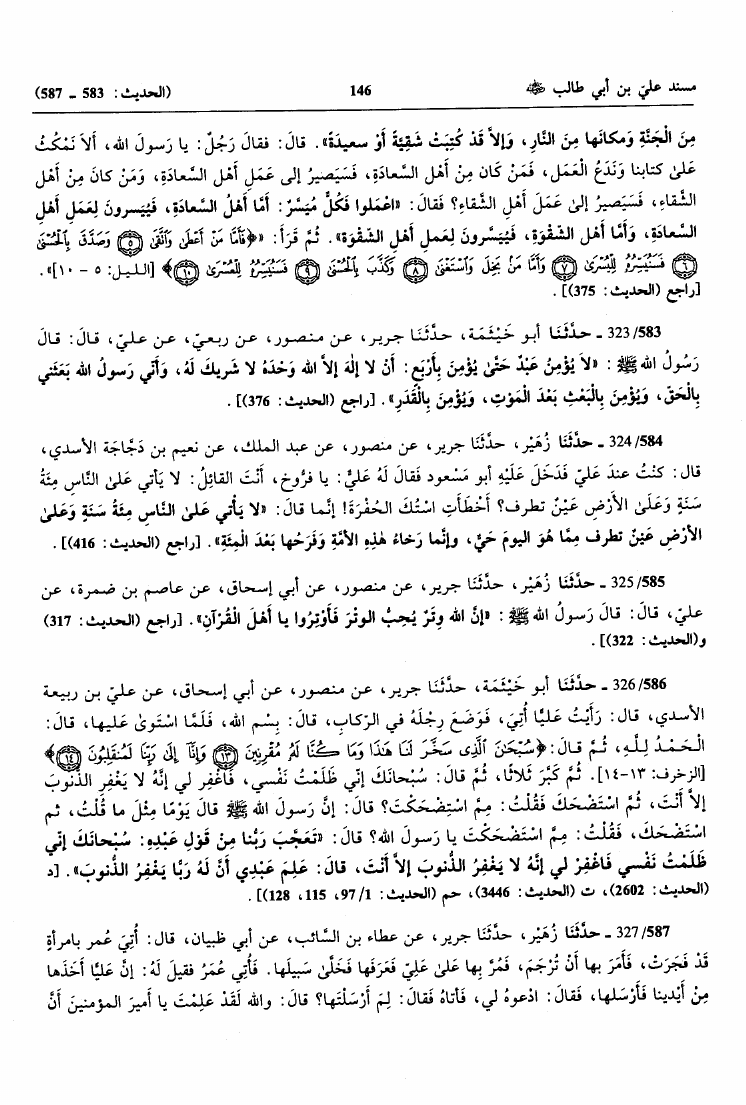 مسند عليّ بن أبي طالب 146 (الحديث: 583 ـ 587)
مِنَ الْجَنَّةِ وَمكانَها مِنَ النَّارِ، وَإِلاَّ قَدْ كُتِبَتْ شَقِيَّةً أَوْ سعيدَةً». قالَ: فقالَ رَجُلٌ: يا رَسولَ الله، أَلاَ نَمْكُثُ
عَلىٰ كتابنا وَنَدَعُ الْعَمَل، فَمَنْ كَان مِنْ أَهْل السَّعادَةِ، فَسَيَصيرُ إلى عَمَلِ أَهْل السَّعادَةِ، وَمَنْ كانَ مِنْ أَهْل
الشَّقاءِ، فَسَيَصيرُ إلىٰ عَمَلَ أَهْلِ الشَّقاءِ؟ فقالَ: «اعْمَلوا فَكُلٌّ مُيَسَّرٌ: أَمَّا أَهْلُ السَّعادَةِ، فَيُيَسرونَ لِعَمَل أَهْلِ
السَّعادَةِ، وَأَمَّا أَهْل الشَّقْوَة، فَيُيَسَّرونَ لِعَملِ أَهْلِ الشَّقْوَة». ثُمَّ قَرَأَ: «﴿فَأَمَّا مَنْ أَعْطَى وَاتَّقَى ﴿٥﴾ وَصَدَّقَ بِالْحُسْنَى
﴿٦﴾ فَسَنُيَسِّرُهُ لِلْيُسْرَى ﴿٧﴾ وَأَمَّا مَنْ بَخِلَ وَاسْتَغْنَى ﴿٨﴾ وَكَذَّبَ بِالْحُسْنَى ﴿٩﴾ فَسَنُيَسِّرُهُ لِلْعُسْرَى ﴿١٠﴾﴾ [الليل: ٥ - ١٠]».
[راجع (الحديث: 375)].
323/583 ـ حدّثَنَا أبو خَيْثَمَة، حدّثَنَا جرير، عن منصور، عن ربعيّ، عن عليّ، قالَ: قالَ
رَسُولُ الله ﷺ: «لاَ يُؤْمِنُ عَبْدٌ حَتَّىٰ يُؤْمِنَ بِأَرْبَعٍ: أَنْ لا إِلٰهَ إِلاَّ الله وَحْدَهُ لا شَريكَ لَهُ، وَأَنّي رَسولُ الله بَعَثَني
بِالْحَقّ، وَيُؤْمِنَ بِالْبَعْثِ بَعْدَ الْمَوْتِ، وَيُؤْمِنَ بِالْقَدَرِ». [راجع (الحديث: 376)].
324/584 ـ حدّثَنَا زُهَيْر، حدّثَنَا جرير، عن منصور، عن عبد الملك، عن نعيم بن دَجَاجَة الأسدي،
قال: كنْتُ عندَ عَليّ فَدَخَلَ عَلَيْهِ أبو مَسْعود فقالَ لَهُ عَليٌّ: يا فرّوخ، أَنْتَ القائِلُ: لا يَأتي عَلىٰ النَّاس مِئَةُ
سَنَةٍ وَعَلَىٰ الأَرْضِ عَيْنٌ تطرف؟ أَخْطَأَتِ اسْتُكَ الحُفْرَةَ! إنَّما قالَ: «لا يَأْتي عَلَىٰ النَّاسِ مِئَةُ سَنَةٍ وَعَلىٰ
الأَرْضِ عَيْنٌ تطرف مِمَّا هُوَ اليومَ حَيٌّ، وإنَّما رَخاءُ هٰذِهِ الأمَّةِ وَفَرَحُها بَعْدَ الْمِئَةِ». [راجع (الحديث: 416)].
325/585 ـ حدّثَنَا زُهَيْر، حدّثَنَا جرير، عن منصور، عن أبي إسحاق، عن عاصم بن ضمرة، عن
عليّ، قالَ: قالَ رَسولُ الله ﷺ: «إنَّ الله وَتْرٌ يُحِبُّ الوتْرَ فَأَوْتِرُوا يا أَهْلَ الْقُرْآنِ». [راجع (الحديث: 317)
و(الحديث: 322)].
326/586 ـ حدّثَنَا أبو خَيْثَمَة، حدّثَنَا جرير، عن منصور، عن أبي إسحاق، عن عليّ بن ربيعة
الأسدي، قال: رَأَيْتُ عَليًّا أُتِيَ، فَوَضَعَ رِجْلَهُ في الرّكابِ، قالَ: بِسْم الله، فَلَمَّا اسْتَوىٰ عَليها، قالَ:
الْحَمْدُ لِلَّهِ، ثُمَّ قالَ: ﴿سُبْحَنَ الَّذِى سَخَّرَ لَنَا هَذَا وَمَا كُنَّا لَهُ مُقْرِنِينَ ﴿١٣﴾ وَإِنَّا إِلَى رَبِّنَا لَمُنقَلِبُونَ ﴿١٤﴾﴾
[الزخرف: ١٣-١٤]. ثُمَّ كَبَّرَ ثَلاثًا، ثُمَّ قالَ: سُبْحانَكَ إنّي ظَلَمْتُ نَفْسي، فَاغْفِر لي إنَّهُ لا يَغْفِر الذُّنوبَ
إلاَّ أَنْتَ، ثُمَّ اسْتَضْحَكَ فَقُلْتُ: مِمَّ اسْتَضْحَكْتَ؟ قالَ: إنَّ رَسولَ الله ﷺ قالَ يَوْمًا مِثْلَ ما قُلْتُ، ثم
اسْتَضْحَكَ، فَقُلْتُ: مِمَّ اسْتَضْحَكْتَ يا رَسولَ الله؟ قالَ: «تَعَجَّبَ رَبُّنا مِنْ قَوْلِ عَبْدِهِ: سُبْحانَكَ إنّي
ظَلَمْتُ نَفْسي فَاغْفِرْ لي إنَّهُ لا يَغْفِرُ الذُّنوبَ إلاَّ أَنْتَ، قالَ: عَلِمَ عَبْدِي أَنَّ لَهُ رَبًّا يَغْفِرُ الذُّنوبَ». [د
(الحديث: 2602)، ت (الحديث: 3446)، حم (الحديث: 1/97، 115، 128)].
327/587 ـ حدّثَنَا زُهَيْر، حدّثَنَا جرير، عن عطاء بن السَّائب، عن أبي ظبيان، قال: أُتِيَ عُمر بامرأةٍ
قَدْ فَجَرَتْ، فَأَمَرَ بها أَنْ تُرْجَمَ، فَمُرَّ بِها عَلىٰ عَليّ فَعَرَفَها فَخَلَّى سَبيلَها. فَأُتِي عُمَرُ فَقيلَ لَهُ: إنَّ عَليًّا أَخَذَها
مِنْ أَيْدينا فَأَرْسَلها، فقالَ: ادْعوهُ لي، فَأَتاهُ فَقالَ: لِمَ أَرْسَلْتَها؟ قالَ: والله لَقَدْ عَلِمْتَ يا أَميرَ المؤمنينَ أَنَّ